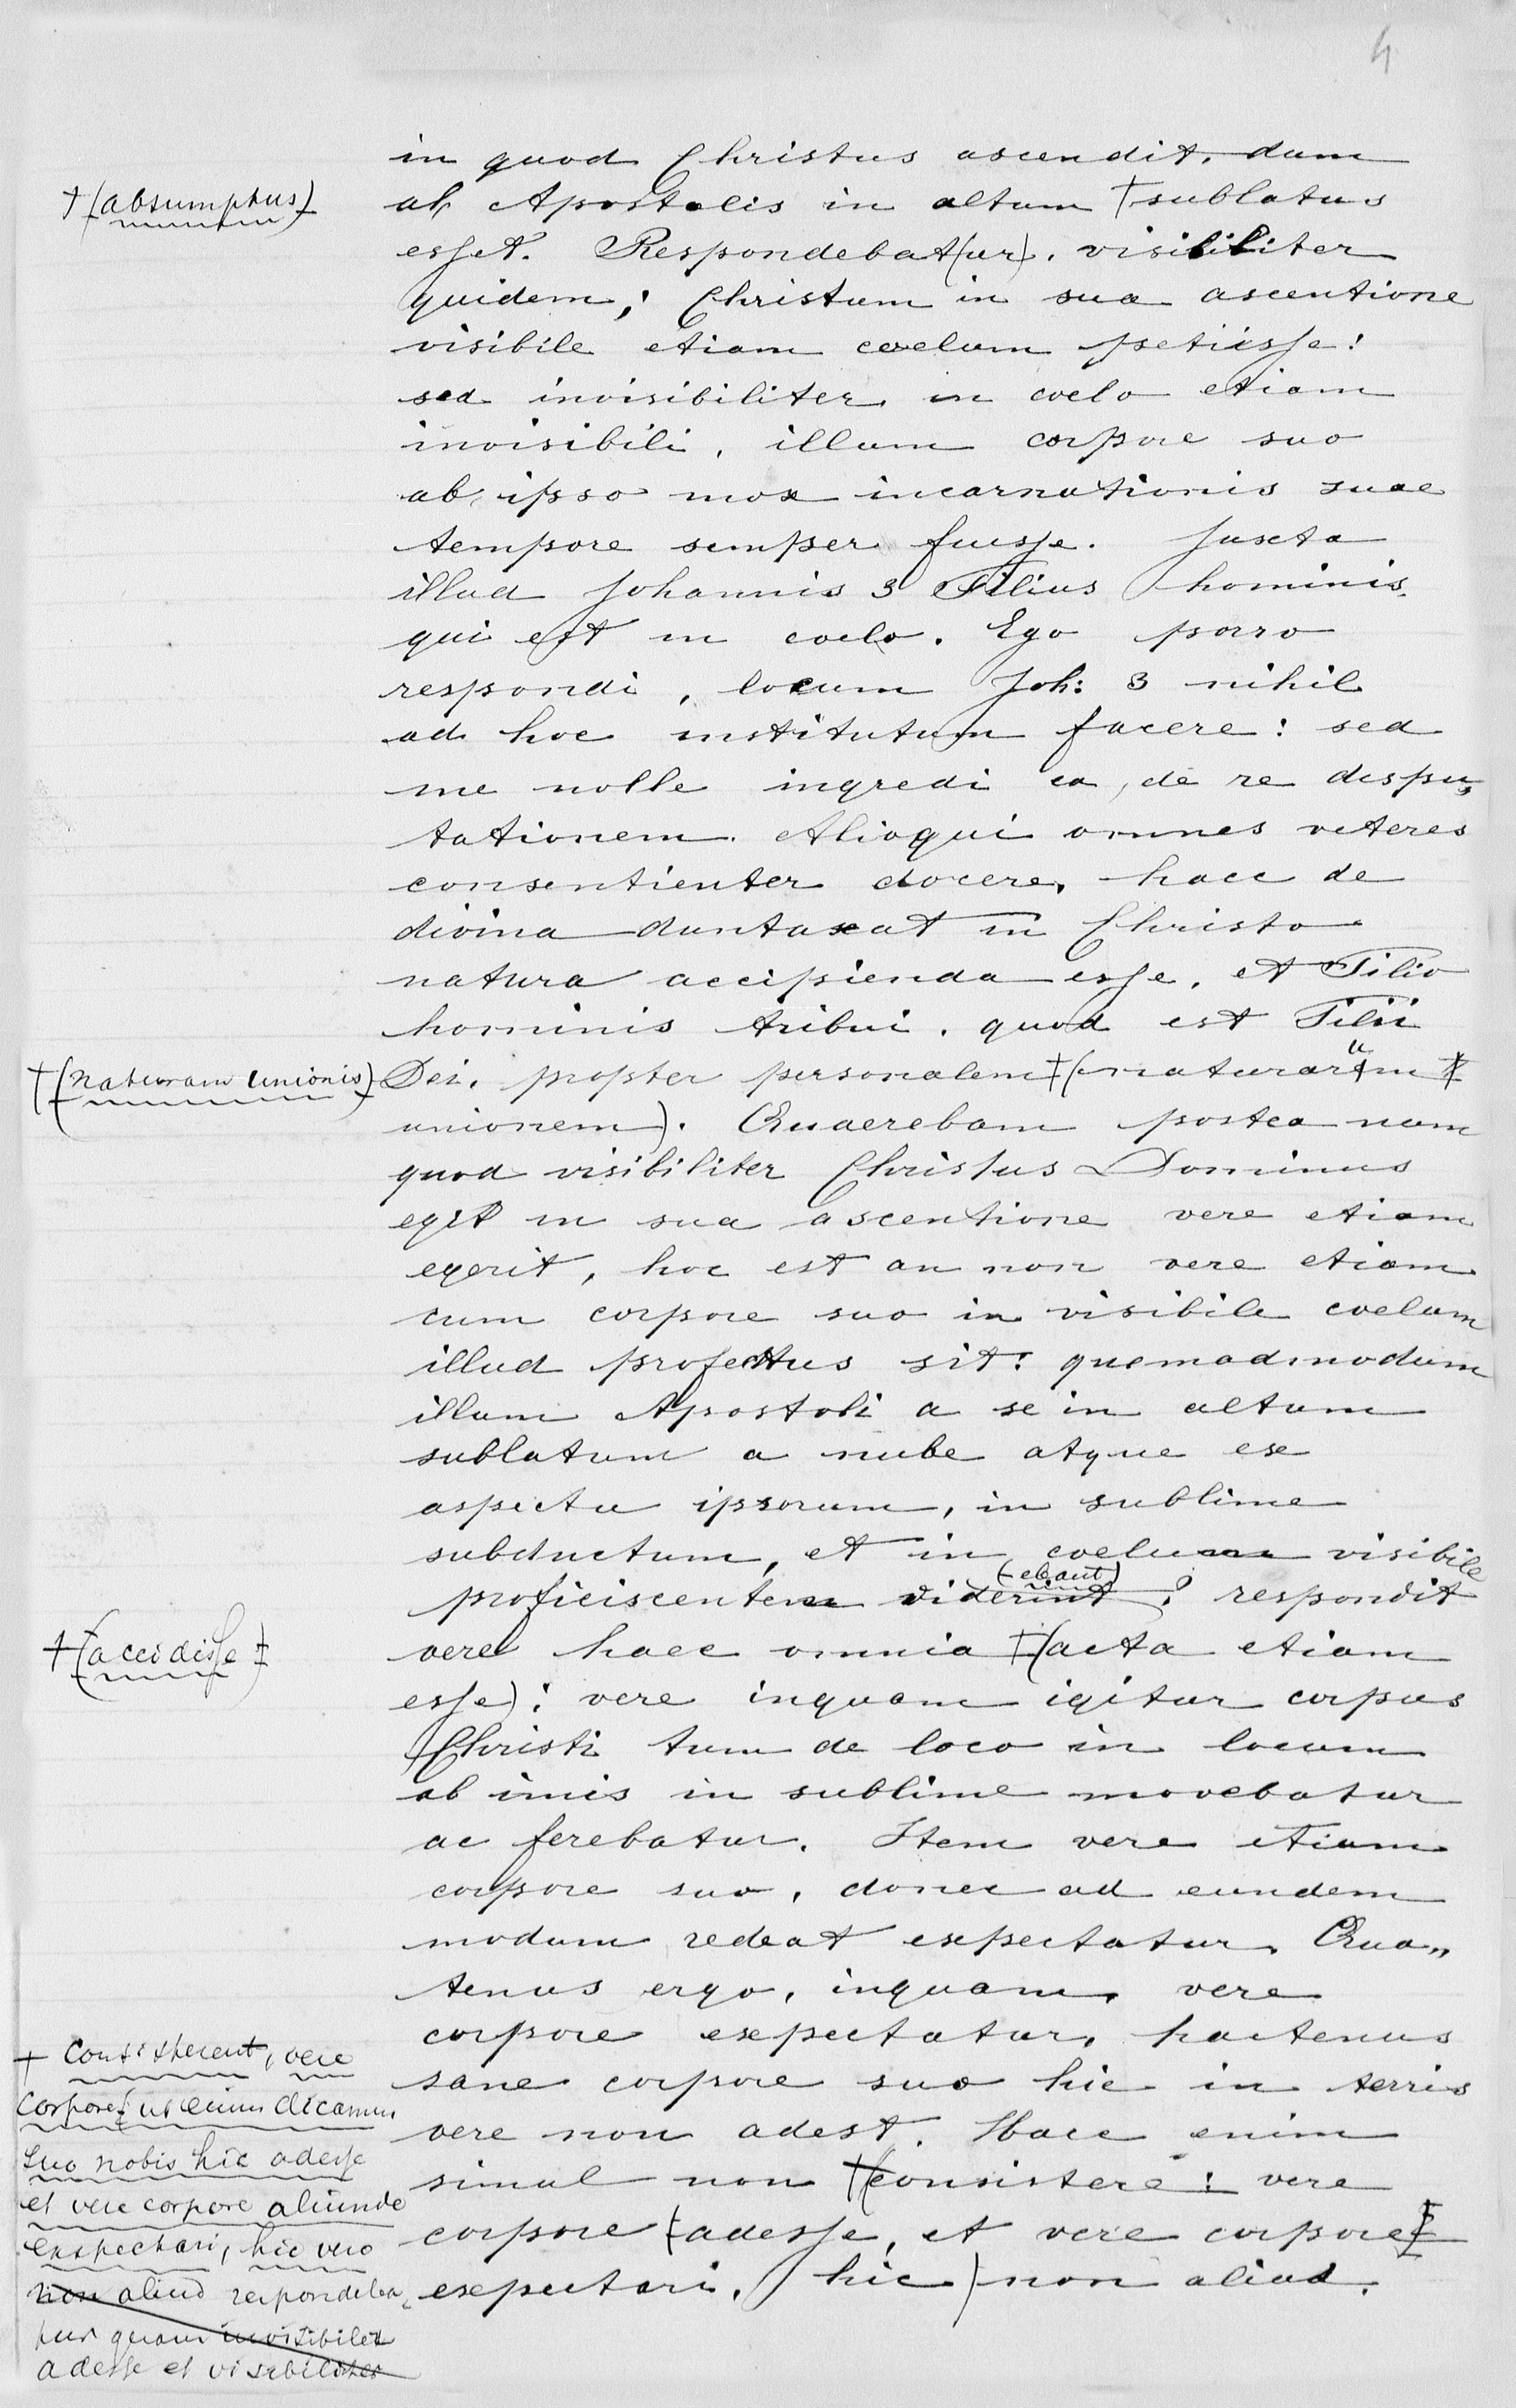 4
in quod Christus ascendit, dum
†(absumptus)
ab Apostolis in altum †sublatus
esset. Respondebat(ur), visibiliter
quidem; Christum in sua ascentione
visibile etiam coelum petiisse:
sed invisibiliter in coelo etiam
invisibili, illum corpore suo
ab ipso mox incarnationis suae
tempore semper fuisse. Juxta
illud Johannis 3 Filius hominis
qui est in coelo. Ego porro
respondi, locum Joh: 3 nihil
ad hoc institutum facere: sed
me nolle ingredi ea, de re dispu„
tationem. Alioqui omnes veteres
consentienter docere, haec de
divina duntaxat in Christo
natura accipienda esse, et Filio
hominis tribui, quod est Filii
†(naturam unionis)
Dei, propter personalem †(naturarum
unionem). Quaerebam postea num
quod visibiliter Christus Dominus
egit in sua ascentione vere etiam
egerit, hoc est an non vere etiam
cum corpore suo in visibile coelum
illud profectus sit: quemadmodum
illum Apostoli a se in altum
sublatum a nube atque ex
aspectu ipsorum, in sublime
subductum, et in coelum visibile
(-ebant)
proficiscentem viderint? respondit
†(accidisse
vere haec omnia †(acta etiam
esse): vere inquam igitur corpus
Christi tum de loco in locum
ab imis in sublime movebatur
ac ferebatur. Item vere etiam
corpore suo, donec ad eundem
modum redeat expectatur. Qua„
tenus ergo, inquam, vere
corpore expectatur, hactenus
sane corpore suo hic in terris
vere non adest. Haec enim
simul non †(consistere: vere
corpore (adesse, et vere corpore
expectari, hic) non aliud.
+ consisterent, vere
corpore ut enim dicamus
suo nobis hic adesse
et vere corpore aliunde
exspectari, hic vero
non aliud respondeba„
tur quam invisibiliter
adesse et visibiliter